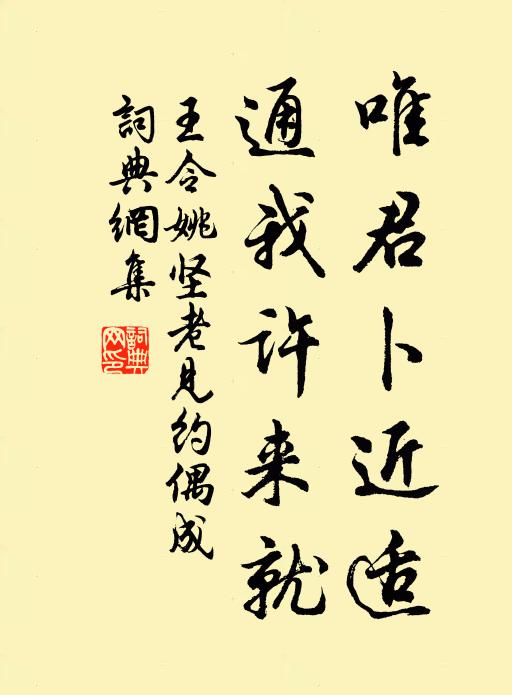 唯君卜近适
通我许来就
王令姚坚老见约偶成
詞典網集
詞典網印